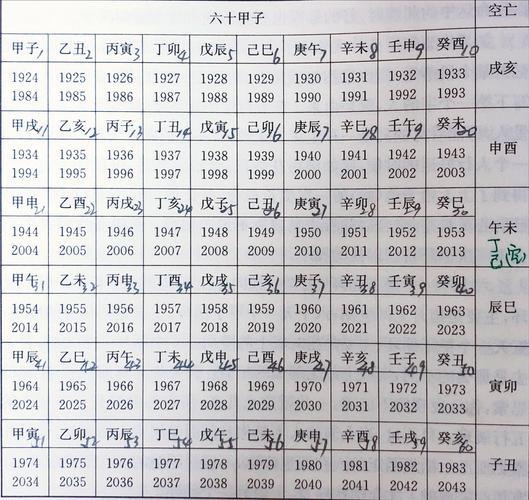 六十甲子 空亡
甲子1 乙丑2 丙寅3 丁卯4 戊辰5 己巳6 庚午7 辛未8 壬申9 癸酉10
1924 1925 1926 1927 1928 1929 1930 1931 1932 1933 戌亥
1984 1985 1986 1987 1988 1989 1990 1991 1992 1993
甲戌11 乙亥12 丙子13 丁丑14 戊寅15 己卯16 庚辰17 辛巳18 壬午19 癸未20
1934 1935 1936 1937 1938 1939 1940 1941 1942 1943 申酉
1994 1995 1996 1997 1998 1999 2000 2001 2002 2003
甲申21 乙酉22 丙戌23 丁亥24 戊子25 己丑26 庚寅27 辛卯28 壬辰29 癸巳30
1944 1945 1946 1947 1948 1949 1950 1951 1952 1953 午未
2004 2005 2006 2007 2008 2009 2010 2011 2012 2013
丁
己
甲午31 乙未32 丙申33 丁酉34 戊戌35 己亥36 庚子37 辛丑38 壬寅39 癸卯40
1954 1955 1956 1957 1958 1959 1960 1961 1962 1963 辰巳
2014 2015 2016 2017 2018 2019 2020 2021 2022 2023
甲辰41 乙巳42 丙午43 丁未44 戊申45 己酉46 庚戌47 辛亥48 壬子49 癸丑50
1964 1965 1966 1967 1968 1969 1970 1971 1972 1973 寅卯
2024 2025 2026 2027 2028 2029 2030 2031 2032 2033
甲寅51 乙卯52 丙辰53 丁巳54 戊午55 己未56 庚申57 辛酉58 壬戌59 癸亥60
1974 1975 1976 1977 1978 1979 1980 1981 1982 1983 子丑
2034 2035 2036 2037 2038 2039 2040 2041 2042 2043